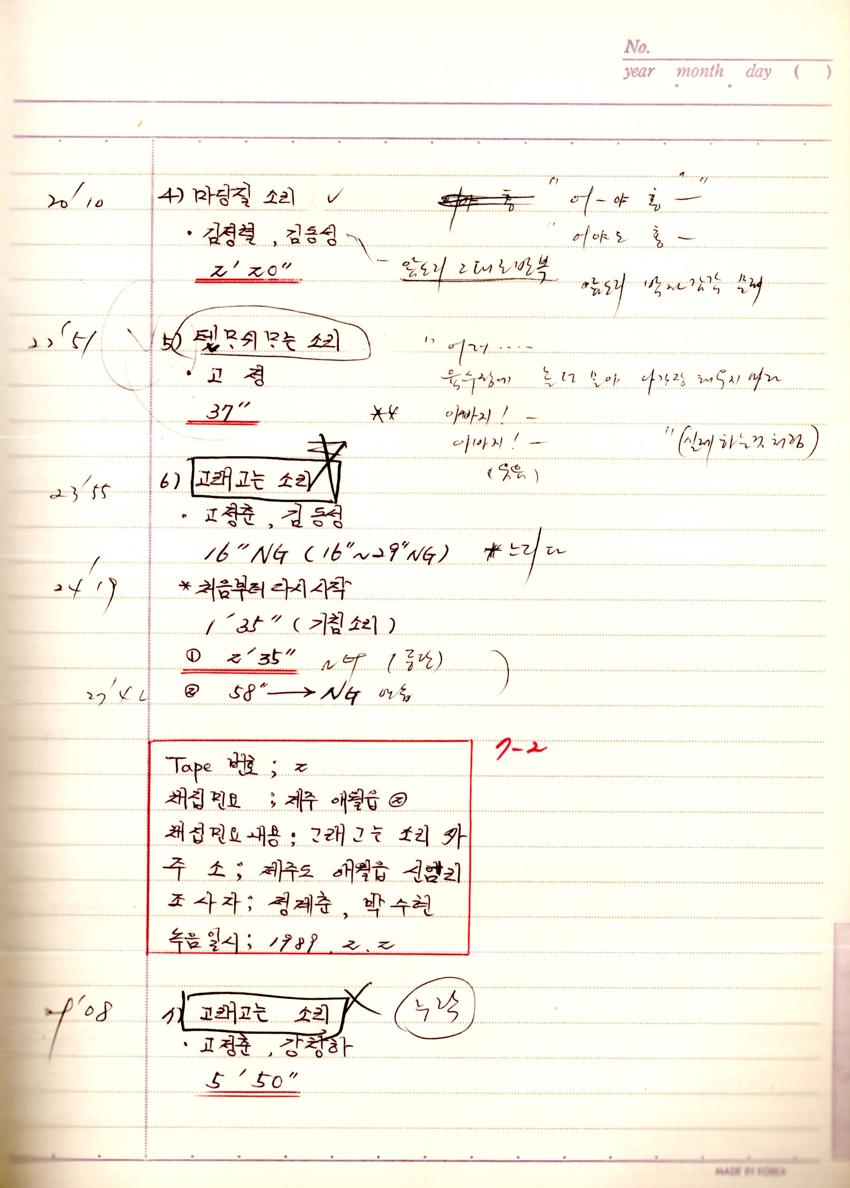 No.
year month day ( )
20'10 4) 마당질 소리 ✓ " 어-야 홍 — "
· 김정혈, 김등성 " 어야도 홍 —
2'20" 앞소리 그대로 반복 앞소리
5) 텟ᄆᆞ쉬 모는 소리 " 어러 ....
· 고 정
37" ** 아빠지! —
아빠지! — " (실제 하는것 처럼)
(웃음)
23'55 6) 고래고는 소리
· 고정춘, 김등성
16" NG (16"~29" NG) * 느리다
24'19 * 처음부터 다시 시작
1'35" (기침소리)
① 2'35" NG (중단)
② 58" → NG
7-2
Tape 번호 ; 2
채집민요 ; 제주 애월읍 ②
채집민요 내용 ; 고래고는 소리 외
주 소 ; 제주도 애월읍 신엄리
조사자 ; 정제춘, 박수현
녹음일시 ; 1989. 2. 2
1) 고래고는 소리 누락
· 고정춘, 강창하
5'50"
MADE IN KOREA